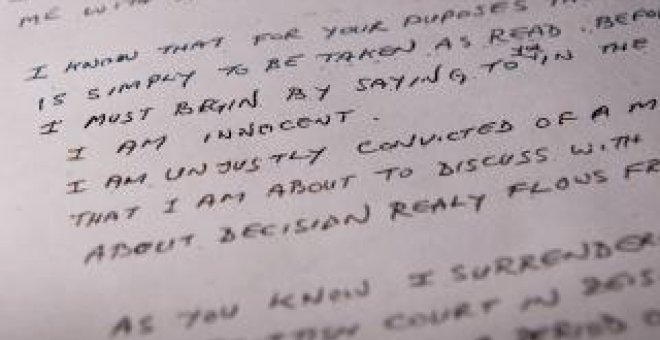 ME WITH
I KNOW THAT FOR YOUR PUPOSES
IS SIMPLY TO BE TAKEN AS READ. BEFO
I MUST BEGIN BY SAYING TO IN THE
I AM INNOCENT.
I AM UNJUSTLY CONVICTED OF A M
THAT I AM ABOUT TO DISCUSS WITH
ABOUT DECISIAN REALY FLOWS FR
AS YOU KNOW I SURRENDER
COURT IN
PERIOD